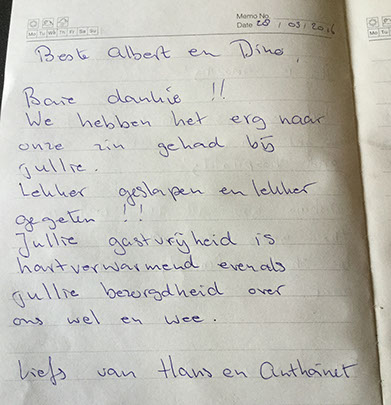 Memo No.
Mo Tu We Th Fr Sa Su
Date 28 / 03 / 2016
Beste Albert en Dino,
Baie dankie !!
We hebben het erg naar
onze zin gehad bij
jullie.
Lekker geslapen en lekker
gegeten !!
Jullie gastvrijheid is
hartverwarmend evenals
jullie bezorgdheid over
ons wel en wee.
Liefs van Hans en Anthoinet